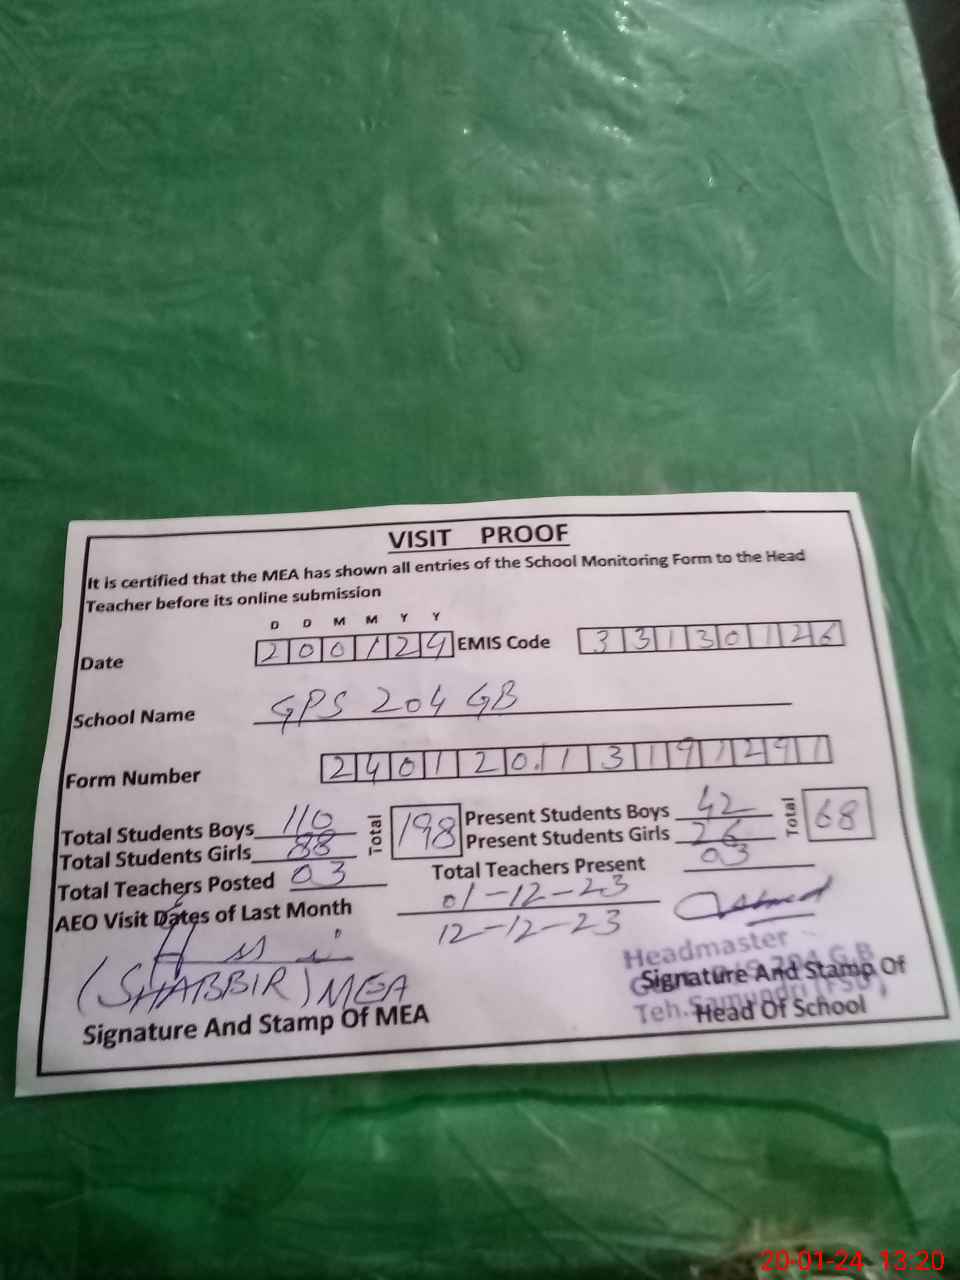 VISIT PROOF
It is certified that the MEA has shown all entries of the School Monitoring Form to the Head
Teacher before its online submission
D D M M Y Y
Date 200124 EMIS Code 33130126
School Name GPS 204 GB
Form Number 24012011319129 1
Total Students Boys 110 Total 198 Present Students Boys 42 Total 68
Total Students Girls 88 Present Students Girls 26
Total Teachers Posted 03 Total Teachers Present 03
AEO Visit Dates of Last Month 01-12-23
12-12-23
(SHABBIR) MEA
Headmaster
204 G.B
Teh. Samundri (FSD)
Signature And Stamp Of MEA
Signature And Stamp Of
Head Of School
20-01-24 13:20